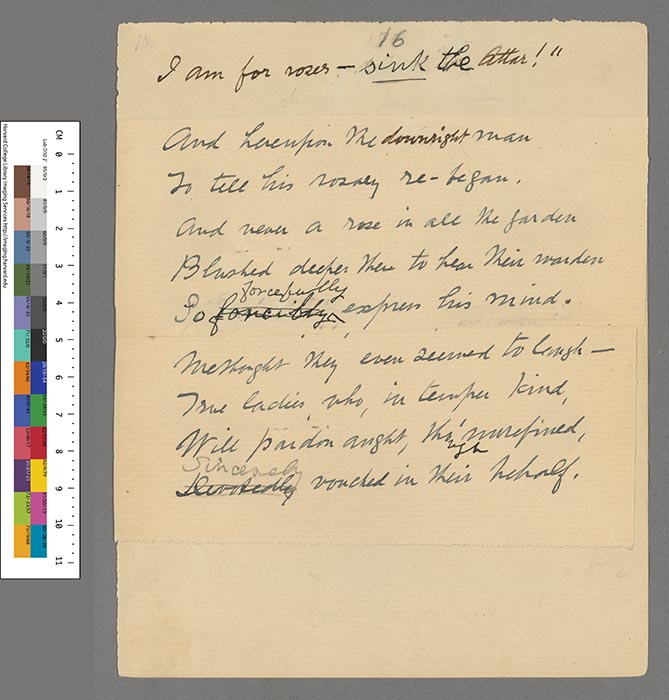 16
I am for roses — sink the Attar!"
And hereupon the downright man
To tell his rosary re-began.
And never a rose in all the garden
Blushed deeper there to hear their warden
forcefully
So forcibly express his mind.
Methought they even seemed to laugh —
True ladies, who, in temper kind,
Will pardon aught, though unrefined,
Sincerely
Devotedly vouched in their behalf.
CM 0 1 2 3 4 5 6 7 8 9 10 11
Harvard College Library Imaging Services http://imaging.harvard.edu